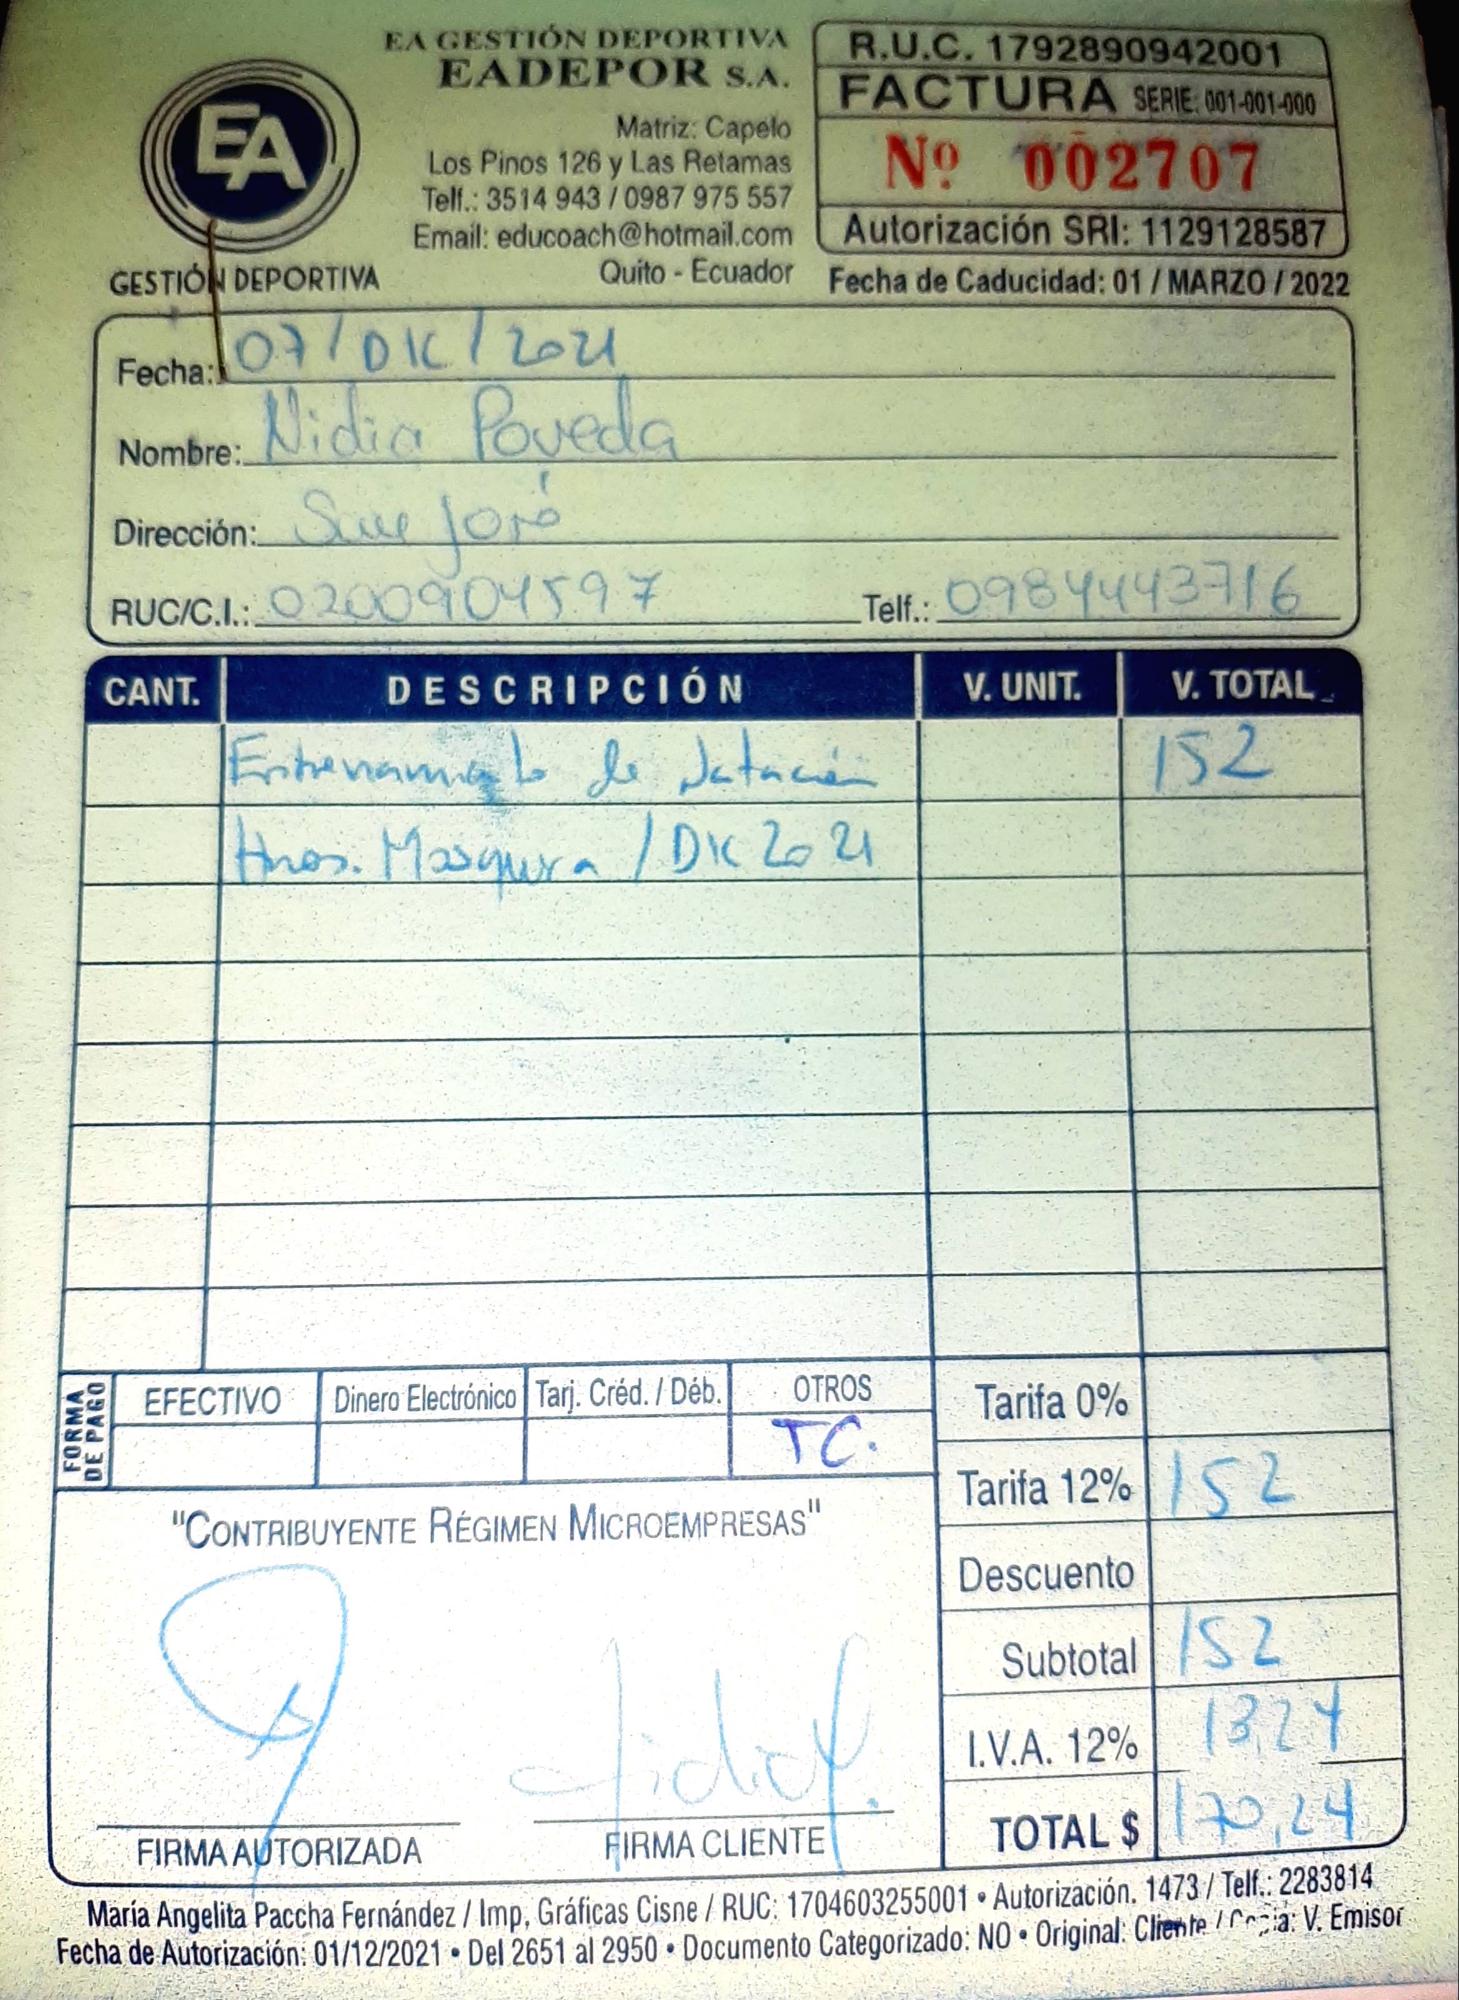 EA GESTIÓN DEPORTIVA
EADEPOR S.A.
Matriz: Capelo
Los Pinos 126 y Las Retamas
Telf.: 3514 943 / 0987 975 557
Email: educoach@hotmail.com
Quito - Ecuador
EA
GESTIÓN DEPORTIVA
R.U.C. 1792890942001
FACTURA SERIE: 001-001-000
Nº 002707
Autorización SRI: 1129128587
Fecha de Caducidad: 01 / MARZO / 2022
Fecha: 07/DIC/2021
Nombre: Nidia Poveda
Dirección: San José
RUC/C.I.: 0200904597 Telf.: 0984443716
CANT. DESCRIPCIÓN V. UNIT. V. TOTAL
Entrenamiento de Natación 152
Hnos. Mosquera / DIC 2021
FORMA DE PAGO EFECTIVO Dinero Electrónico Tarj. Créd. / Déb. OTROS
TC.
Tarifa 0%
Tarifa 12% 152
Descuento
Subtotal 152
I.V.A. 12% 13,24
TOTAL $ 170,24
"CONTRIBUYENTE RÉGIMEN MICROEMPRESAS"
FIRMA AUTORIZADA FIRMA CLIENTE
María Angelita Paccha Fernández / Imp, Gráficas Cisne / RUC: 1704603255001 • Autorización. 1473 / Telf.: 2283814
Fecha de Autorización: 01/12/2021 • Del 2651 al 2950 • Documento Categorizado: NO • Original: Cliente / Copia: V. Emisor